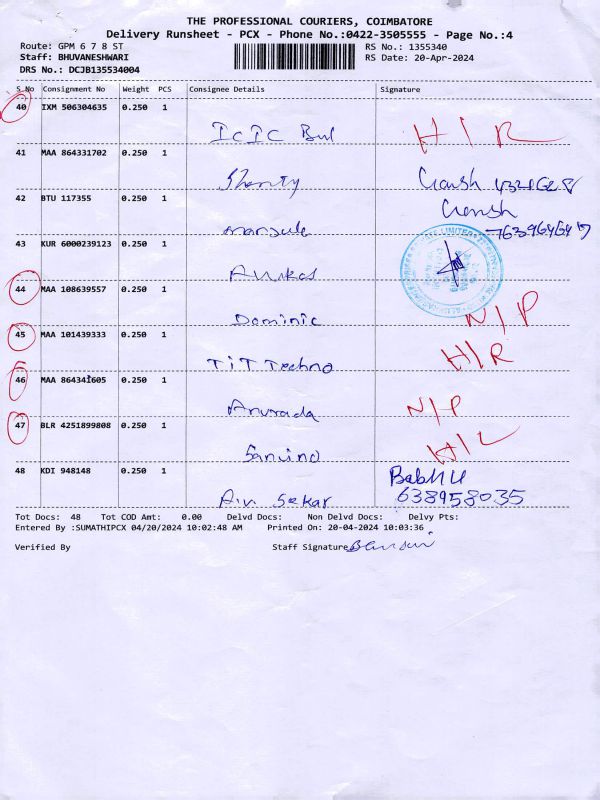 THE PROFESSIONAL COURIERS, COIMBATORE
Delivery Runsheet - PCX - Phone No.:0422-3505555 - Page No.:4
Route: GPM 6 7 8 ST RS No.: 1355340
Staff: BHUVANESHWARI RS Date: 20-Apr-2024
DRS No.: DCJB135534004
S.No Consignment No Weight PCS Consignee Details Signature
40 IXM 506304635 0.250 1
ICIC H/R
41 MAA 864331702 0.250 1
42 BTU 117355 0.250 1
43 KUR 6000239123 0.250 1
44 MAA 108639557 0.250 1
Dominic N/P
45 MAA 101439333 0.250 1
TIT Techno H/R
46 MAA 864341605 0.250 1
Anurada N/P
47 BLR 4251899808 0.250 1
48 KDI 948148 0.250 1
Sekar 638958035
Tot Docs: 48 Tot COD Amt: 0.00 Delvd Docs: Non Delvd Docs: Delvy Pts:
Entered By :SUMATHIPCX 04/20/2024 10:02:48 AM Printed On: 20-04-2024 10:03:36
Verified By Staff Signature